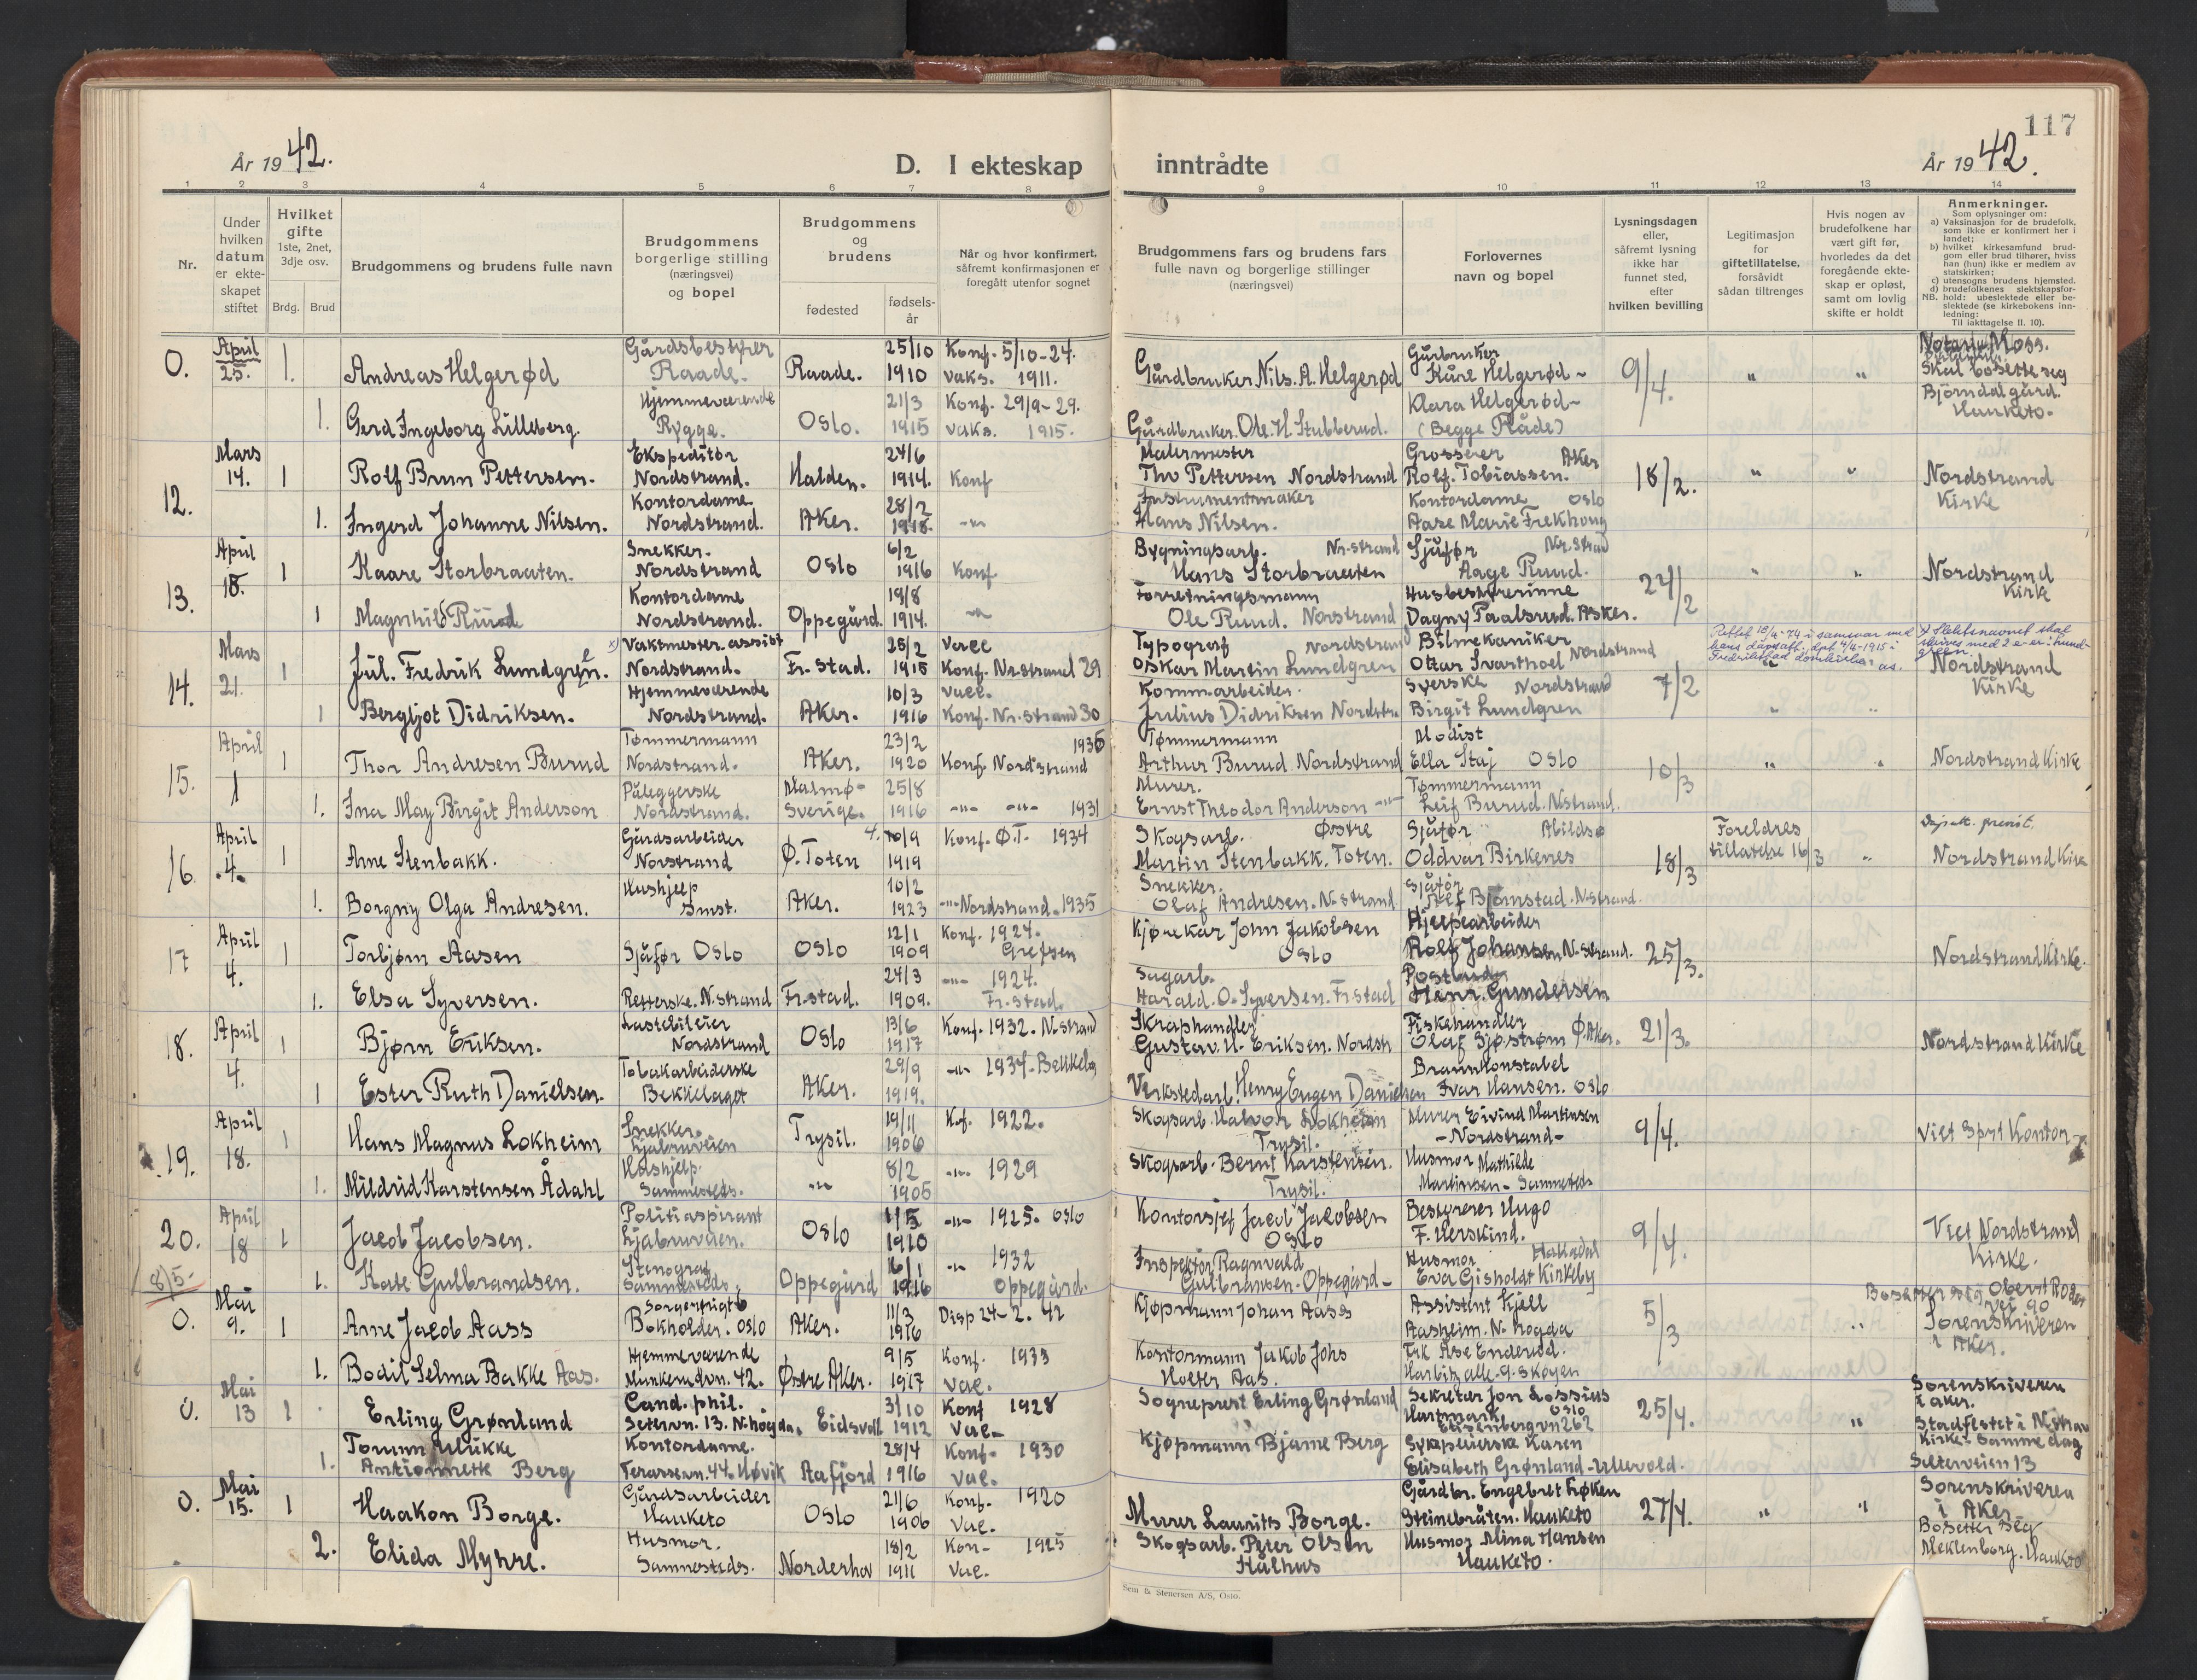 117
År 1942.
D. I ekteskap inntrådte
År 1942.
1 2 3 4 5 6 7 8 9 10 11 12 13 14
Nr.
Under hvilken datum er ekteskapet stiftet
Hvilket gifte 1ste, 2net, 3dje osv.
Brdg. Brud
Brudgommens og brudens fulle navn
Brudgommens borgerlige stilling (næringsvei) og bopel
Brudgommens og brudens
fødested
fødsels-år
Når og hvor konfirmert, såfremt konfirmasjonen er foregått utenfor sognet
Brudgommens fars og brudens fars fulle navn og borgerlige stillinger (næringsvei)
Forlovernes navn og bopel
Lysningsdagen eller, såfremt lysning ikke har funnet sted, efter hvilken bevilling
Legitimasjon for giftetillatelse, forsåvidt sådan tiltrenges
Hvis nogen av brudefolkene har vært gift før, hvorledes da det foregående ekteskap er opløst, samt om lovlig skifte er holdt
Anmerkninger.
Som oplysninger om:
a) Vaksinasjon for de brudefolk, som ikke er konfirmert her i landet;
b) hvilket kirkesamfund brudgom eller brud tilhører, hviss han (hun) ikke er medlem av statskirken;
c) utensogns brudens hjemsted.
d) brudefolkenes slektskapsforhold: ubeslektede eller beslektede (se kirkebokens innledning:
NB. Til iakttagelse II. 10).
0. April 25. 1. Andreas Helgerød Gårdsbestyrer Raade. Raade. 25/10 1910 Konf. 5/10-24. vaks. 1911. Gårdbruker Nils. A. Helgerød Gårbruker Kåre Helgerød - 9/4. " " Notarius Moss. Skal bosette seg
1. Gerd Ingeborg Lilleberg. Hjemmeværende Rygge. Oslo. 21/3 1915 Konf. 29/9-29. vaks. 1915. Gårdbruker. Ole. H. Stubberud. Klara Helgerød - (Begge Råde) Bjørndal gård. Hauketo.
12. Mars 14. 1 Rolf Brun Pettersen. Ekspeditør Nordstrand. Halden. 24/6 1914. Konf Malermester Thv Pettersen Nordstrand Grosserer Aker Rolf. Tobiassen. 18/2. " " Nordstrand Kirke
1. Ingerd Johanne Nilsen. Kontordame Nordstrand. Aker. 28/2 1918. -"- Instrumentmaker Hans Nilsen. Kontordame Oslo Aase Marie Frekhoug
13. April 18. 1 Kaare Storbraaten. Snekker. Nordstrand Oslo 6/2 1916 Konf Bygningsarb. Nr.strand Hans Storbraaten Sjåfør Nr.strand Aage Ruud. 24/2 " " Nordstrand Kirke
1 Magnhild Ruud Kontordame Nordstrand. Oppegård. 19/8 1914. -"- Forretningsmann Ole Ruud. Norstrand Husbestyrerinne Dagny Paalsrud. Asker.
14. Mars 21. 1 Jul. Fredrik Lundgren. x) Vaktmester. assist Nordstrand. Fr. stad. 25/2 1915 Vacc Konf. Nr.strand 29 Typograf Nordstrand Oskar Martin Lundgren Bilmekaniker Ottar Svarthoel Nordstrand 7/2 Rettet 18/4-74 i samsvar med hans dåpsatt., døpt 4/4-1915 i Fredrikstad domkirke x) Slektsnavnet skal skrives med 2 e-er i Lundgreen. Nordstrand Kirke
1 Bergljot Didriksen. Hjemmeværende Nordstrand. Aker. 10/3 1916 Vacc. Konf. Nr.strand 30 Komm.arbeider. Julius Didriksen Nordstr. Syerske Nordstrand Birgit Lundgren
15. April 1 1 Thor Andresen Burud Tømmermann Nordstrand. Aker. 23/2 1920 1936 Konf. Nordstrand Tømmermann Arthur Burud Nordstrand Modist Ella Staj Oslo 10/3 " " Nordstrand Kirke
1. Ina May Birgit Anderson Påleggerske Nordstrand. Malmø - Sverige. 25/8 1916 -"- -"- 1931 Murer. Ernst Theodor Anderson -"- Tømmermann Leif Burud. N.strand.
16 April 4. 1 Arne Stenbakk. Gårdsarbeider Norstrand Ø. Toten 4. 10/9 1919 Konf. Ø.T. 1934 Skogsarb. Østre Martin Stenbakk. Toten. Sjåfør Abildsø Oddvar Birkenes 18/3 Foreldres tillatelse 16/3 " Nordstrand Kirke
1. Borgny Olga Andresen. Hushjelp Smst. Aker. 10/2 1923 -"- Nordstrand. 1935 Snekker. Olaf Andresen. N.strand Sjåfør Bjørnstad. N.strand.
17 April 4. 1 Torbjørn Aasen Sjåfør Oslo Oslo 12/1 1909 Konf. 1924. Grefsen Kjørekar John Jakobsen Oslo Hjelpearbeider Rolf Johansen N.strand. 25/3. Nordstrand Kirke.
1. Elsa Syversen. Retterske. N.strand Fr.stad. 24/3 1909. -"- 1924. Fr.stad. Sagarb. Harald. O. Syversen. Fr.stad Postbud Henr. Gundersen
18. April 4. 1 Bjørn Eriksen. Lastebileier Nordstrand Oslo 13/6 1917 Konf. 1932. N.strand Skraphandler Gustav. H. Eriksen. Nordstr Fiskehandler Ø.Aker. Olaf Sjøstrøm 21/3. Nordstrand Kirke
1 Ester Ruth Danielsen. Tobakarbeiderske Bekkelaget Aker. 29/9 1919. -"- 1934. Bekkelag Verkstedarb. Henry Eugen Danielsen Brannkonstabel Ivar Hansen. Oslo
19. April 18. 1 Hans Magnus Lokheim Snekker. Ljabruveien Trysil. 19/11 1906 Kof. 1922. Skogsarb. Halvor Lokheim Trysil. Murer Eivind Martinsen - Nordstrand - 9/4. Viet Sprt Kontor
1. Mildrid Karstensen Ådahl Hushjelp. Sammesteds. -"- 8/2 1905 -"- 1929 Skogsarb. Bernt Karstensen. Trysil. Husmor Mathilde Martinsen - Sammesteds
20. April 18 1 Jacob Jacobsen. Politiaspirant Ljabruveien. Oslo 1/5 1910 -"- 1925. Oslo Kontorsjef Jacob Jacobsen Oslo Bestyrerer Hugo F. Herskind. 9/4. Viet Nordstrand Kirke.
8/5 - 1. Kate Gulbrandsen. Stenograf Sammesteds. Oppegård 16/1 1916 -"- 1932 Oppegård. Inspektør Ragnvald Gulbransen - Oppegård - Husmor Hakadal Eva Gisholdt Kirkeby
0. Mai 9. 1 Arne Jacob Aass Sorgenfrigt 6 Bokholder. Oslo Aker. 11/3 1916 Disp 24-2. 42 Kjøpmann Johan Aass Assistent Kjell Aasheim. N. hogda 5/3 " Bosetter seg Oberst Rodes vei 90 Sorenskriveren i Aker.
1. Bodil Selma Bakke Aas. Hjemmeværende Munkerudvn. 42. Østre Aker. 9/5 1917 Konf. 1933 Vac. Kontormann Jakob Johs Holter Aas. Frk Åse Enderud. Harbitz alle. 9. Skøyen
0. Mai 13 1 Erling Grønland Cand. phil. Setervn. 13. N.høgda. Eidsvoll 31/10 1912 Konf 1928 Vac. Sogneprest Erling Grønland Sekretær Jon Lossius Hartmark Oslo Eksenbergvn 262 25/4. " Sorenskriveren i aker. Stadfestet i N.strand Kirke samme dag
1. Torunn Ulükke Antionnette Berg Kontordame. Terassevn. 44. Høvik Aafjord 28/4 1916 Konf. 1930 Vac. Kjøpmann Bjarne Berg Sykepleierske Karen Elisabeth Grønland - Ullevold. Setterveien 13
0. Mai 15. 1 Haakon Borge. Gårdsarbeider Hauketo Oslo 21/6 1906 Konf. 1920 Vac. Murer Laurits Borge. Gårdbr. Engebret Røken Steinebråten. Hauketo 27/4. " " Sorenskriveren i Aker
2. Elida Myhre. Husmor. Sammesteds. Norderhov 18/2 1911 Kon- 1925 Vac. Skogsarb. Peter Olsen Hålhus Husmor Mina Hansen Hauketo. Bosetter seg Meklenborg. Hauketo
Sem & Stenersen A/S, Oslo.